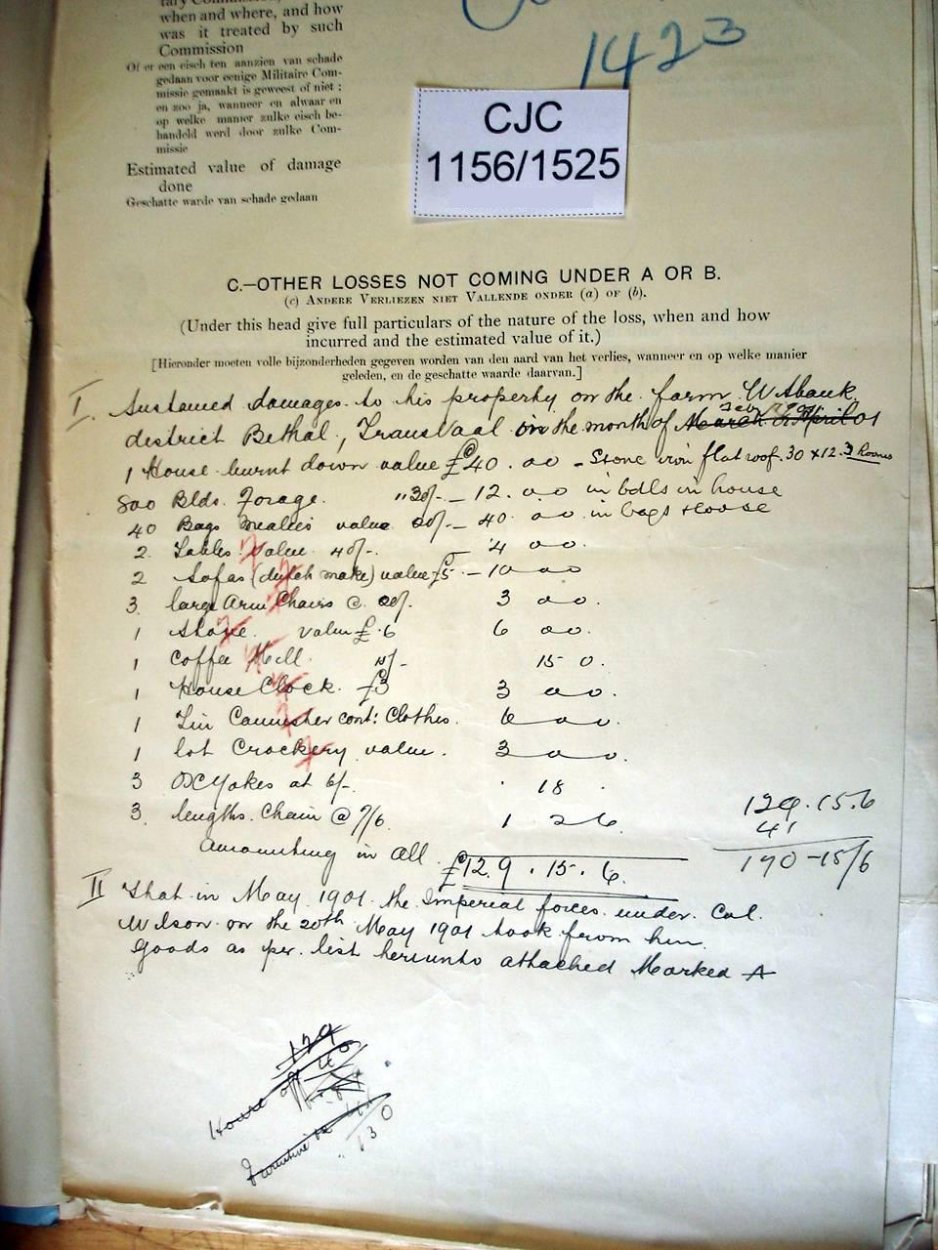 when and where, and how
was it treated by such
Commission
Of er een eisch ten aanzien van schade
gedaan voor eenige Militaire Com-
missie gemaakt is geweest of niet;
en zoo ja, wanneer en alwaar en
op welke manier zulke eisch be-
handeld werd door zulke Com-
missie
Estimated value of damage
done
Geschatte warde van schade gedaan
1423
CJC
1156/1525
C.—OTHER LOSSES NOT COMING UNDER A OR B.
(c) Andere Verliezen niet Vallende onder (a) of (b).
(Under this head give full particulars of the nature of the loss, when and how
incurred and the estimated value of it.)
[Hieronder moeten volle bijzonderheden gegeven worden van den aard van het verlies, wanneer en op welke manier
geleden, en de geschatte waarde daarvan.]
I. Sustained damages to his property on the farm Witbank
district Bethal, Transvaal in the month of March or April 01
1 House burnt down value £40. 00 - Stone iron flat roof. 30 x 12. 3 Rooms
800 Blds. Forage. " 30/- - 12. 00 in bdls in house
40 Bags Mealies value 20/- - 40 00 in bags & loose
2. Tables Value 40/-. 4 00.
2 Sofas (dutch make) value £5 - 10 00
3. large Arm Chairs @ 20/. 3 00.
1 Stove. value £.6 6 00.
1 Coffee Mill 15/- 15 0.
1 House Clock. £3 3 00.
1 Tin Cannister cont: Clothes. 6 00.
1 lot Crockery value. 3 00.
3 Ox Yokes at 6/- 18.
3. lengths. Chain @ 7/6 1 2 6
129.15.6
41
170-15/6
Amounting in all. £129.15.6.
II That in May 1901 the Imperial forces under Col.
Wilson on the 20th May 1901 took from him
goods as per list hereunto attached Marked A
129
House off 40
130